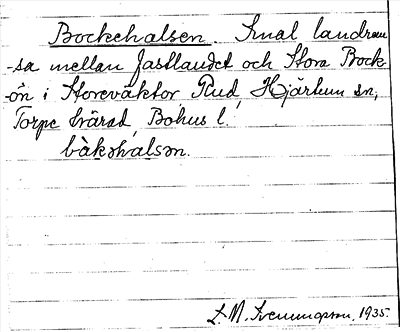 Bockehalsen. Smal landrem
-sa mellan fastlandet och Stora Bock
-ön i Storeväktor, Rud, Hjärtum sn,
Torpe härad, Bohus l.
båkəhalsən.
L. M. Svenungsson, 1935.